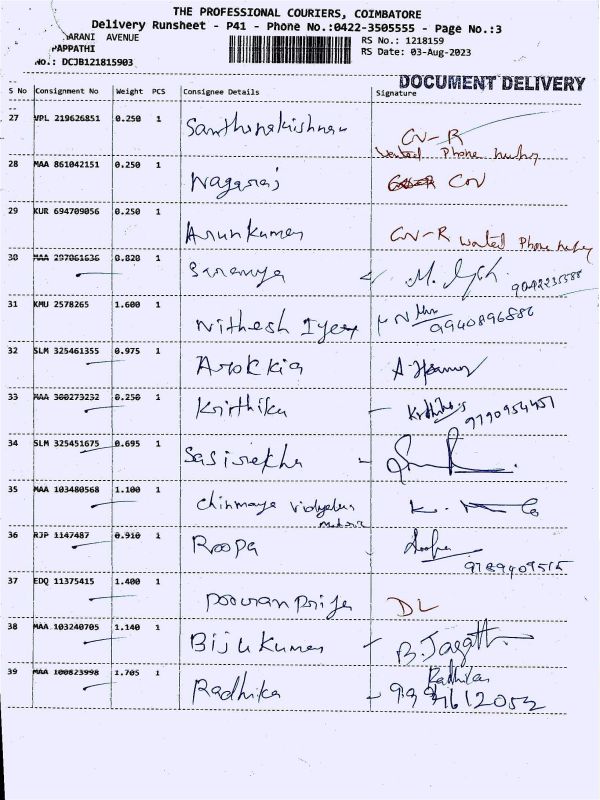 THE PROFESSIONAL COURIERS, COIMBATORE
Delivery Runsheet - P41 - Phone No.:0422-3505555 - Page No.:3
ARANI AVENUE
PAPPATHI
No.: DCJB121815903
RS No.: 1218159
RS Date: 03-Aug-2023
DOCUMENT DELIVERY
S No Consignment No Weight PCS Consignee Details Signature
27 VPL 219626851 0.250 1 Santhanakrishnan CN-R
wanted Phone
28 MAA 861042151 0.250 1 Nagaraj COV
29 KUR 694709056 0.250 1 Arunkumar CN-R wanted Phone
30 MAA 297061636 0.820 1 Saranya M.
9092235588
31 KMU 2578265 1.600 1 Nithesh Iyer
9940896886
32 SLM 325461355 0.975 1 Arokkia
33 MAA 300273232 0.250 1 Krithika
9790954451
34 SLM 325451675 0.695 1 Sasirekha
35 MAA 103480568 1.100 1 Chinmaya K.
36 RJP 1147487 0.910 1 Roopa
9789409515
37 EDQ 11375415 1.400 1 Poouranpriya DL
38 MAA 103240705 1.140 1 Bijukumar B.
39 MAA 100823998 1.705 1 Radhika Radhika